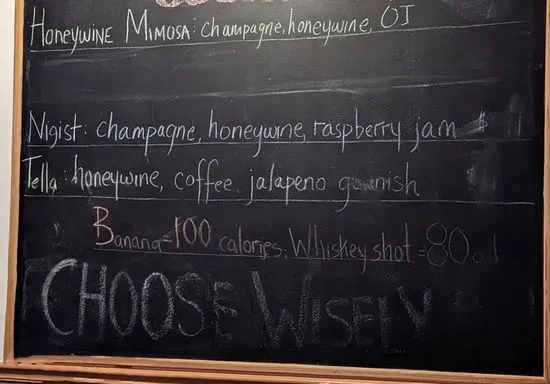 Honeywine Mimosa: champagne, honeywine, OJ
Nigist: champagne, honeywine, raspberry jam
Tella: honeywine, coffee, jalapeno garnish
Banana=100 calories. Whiskey shot=80
Choose Wisely